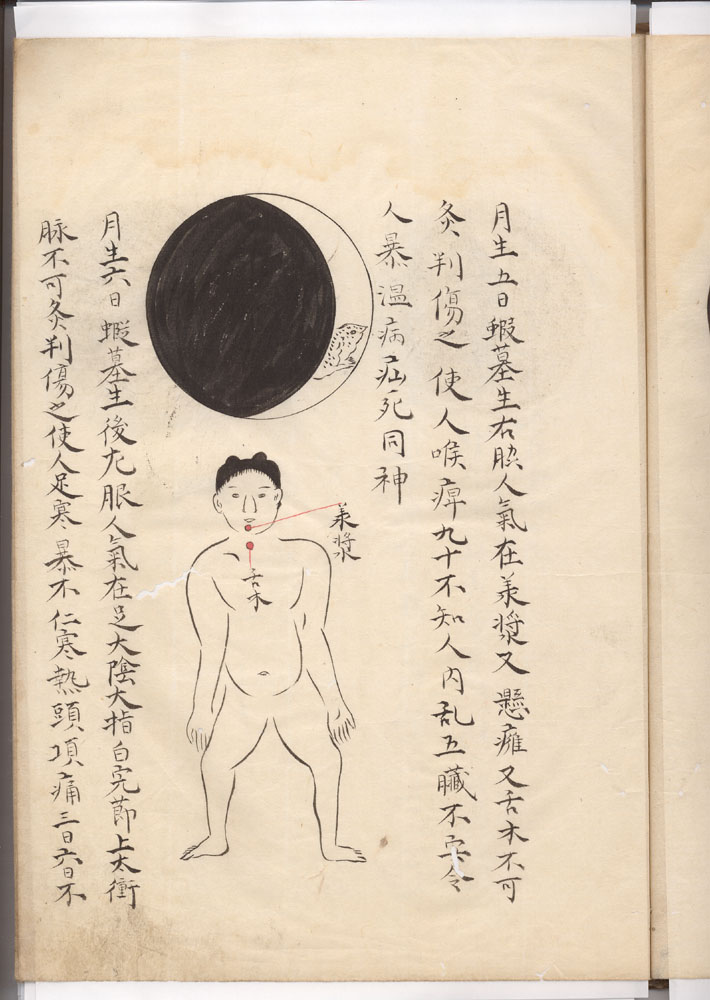 月生五日蝦墓生右脇人氣在羕漿又懸癰又舌木不可
灸判傷之使人喉痺九十不知人內乱五臟不安令
人暴温病疝死同神
羕漿
舌木
月生六日蝦墓生後尢服人氣在足大陰大指白完莭上太衝
脉不可灸判傷之使人足寒暴不仁寒熱頭項痛三日六日不